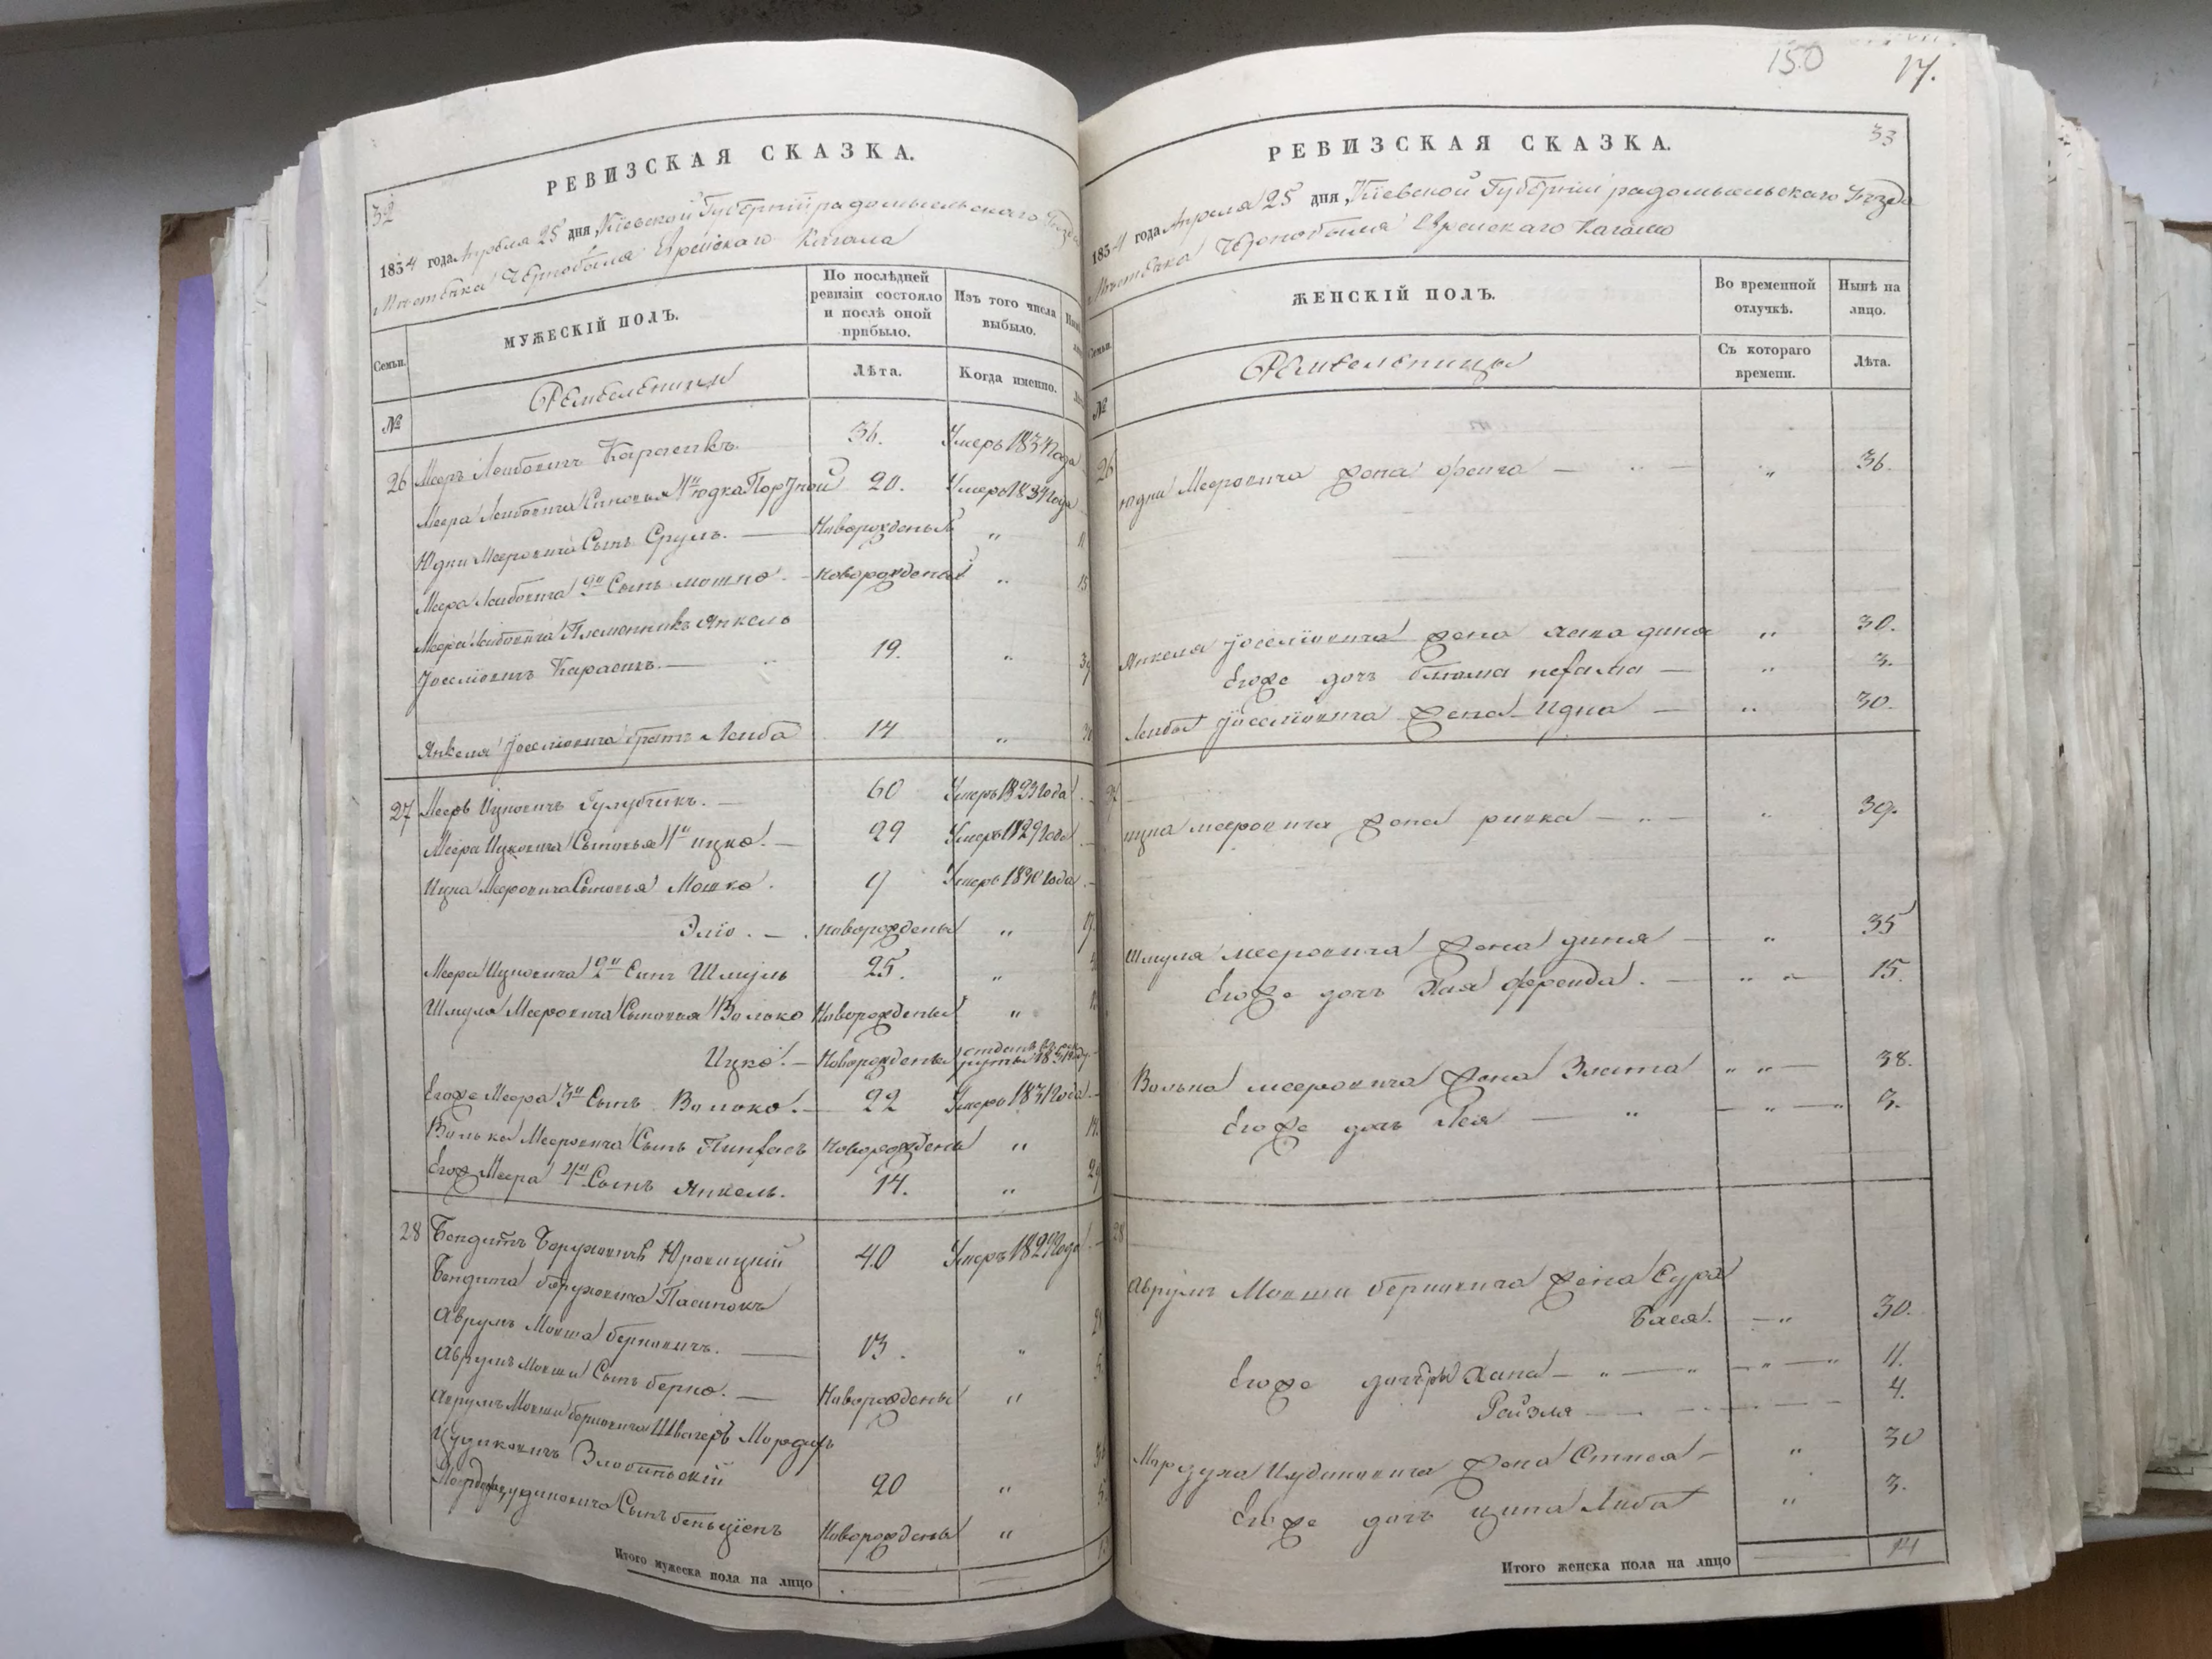 32
РЕВИЗСКАЯ СКАЗКА.
1834 года Апреля 25 дня, Кіевской Губерніи радомысльскаго Уезда
Местечка Чернобыля Еврейскаго Кагала
Семьи.
МУЖЕСКІЙ ПОЛЪ.
По послѣдней ревизіи состояло и послѣ оной прибыло.
Изъ того числа выбыло.
№
Ремесленники
Лѣта.
Когда именно.
26 Мееръ Лейбовичъ Карасикъ. 36. Умеръ 1834 года
Меера Лейбовича Сыновья 1й Юдка 20. Умеръ 1834 года
Юдки Мееровича Сынъ Сруль. — Новорожденый „ 11
Меера Лейбовича 2й Сынъ мошко. — новорожденый „ 15
Меера Лейбовича Племенникъ Янкель
Іоселіовичъ Карасикъ. — 19. „
Янкеля Іоселіовича братъ Лейба 14 „
27 Мееръ Ицковичъ Гулубчикъ. — 60 Умеръ 1823 года
Меера Ицковича Сыновья 1й ицко. — 29 Умеръ 1829 года
Ицка Мееровича Сыновья Мошко. 9 Умеръ 1830 года
Эліо. — новорожденый „
Меера Ицковича 2й Сынъ Шмуль 25. „
Шмуля Мееровича Сыновья Волько Новорожденый „
Ицко. — Новорожденый отданъ въ рекруты
Егожъ Меера 3й Сынъ Волько. — 22 Умеръ 1831 года
Волька Мееровича Сынъ Пинхасъ новорожденый „
Егожъ Меера 4й Сынъ Янкель. 14. „
28 Бендитъ Боруховичъ 40 Умеръ 1827 года
Бендита боруховича Пасинокъ
Аврумъ Мовша берковичъ. — 13. „
Аврумъ Мовши Сынъ берко. — Новорожденый „
Аврумъ Мовши берковича Швагеръ Мордухъ
20 „
Сынъ беньціенъ Новорожденый „
Итого мужеска пола на лицо
150
17.
33
РЕВИЗСКАЯ СКАЗКА.
1834 года Апреля 25 дня, Кіевской Губерніи радомысльскаго Уезда
Местечка Чернобыля Еврейскаго Кагала
Семьи.
ЖЕНСКІЙ ПОЛЪ.
Во временной отлучкѣ.
Нынѣ на лицо.
№
Ремесленницы
Съ котораго времени.
Лѣта.
26 Юдки Мееровича жена фейга — „ — „ 36.
Янкеля Іоселіовича жена хася дина „ 30.
Егоже дочь блюма нехама — „ 3.
Лейбы Іоселіовича жена Идка — „ 30.
27
ицка мееровича жена ривка — „ — „ 39.
Шмуля мееровича жена диня — „ 35
Егоже дочь Хая фрейда. — „ 15.
Волька мееровича жена Злата „ „ — 38.
Егоже дочь Лея — „ — „ — 3.
28
Аврумъ Мовши берковича жена Сура
Бася. — „ 30.
Егоже дочери Хана — „ — „ — „ — 11.
Райзля — 4.
Мордуха жена Стися — „ 30
Егоже дочь ципа Либа „ 3.
Итого женска пола на лицо 14